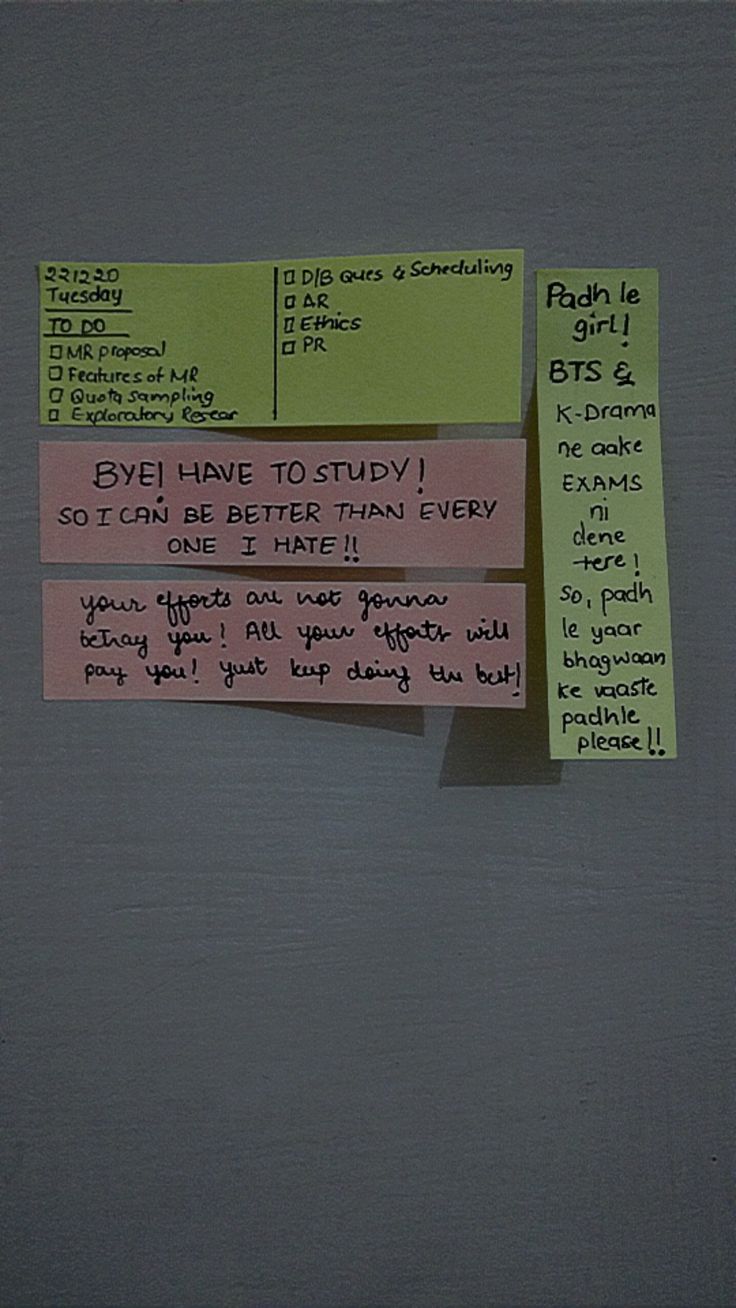 221220
Tuesday
TO DO
MR proposal
Features of MR
Quota sampling
Exploratory Resear
D/B Ques & Scheduling
AR
Ethics
PR
BYE! HAVE TO STUDY!
SO I CAN BE BETTER THAN EVERY
ONE I HATE!!
your efforts are not gonna
betray you! All your efforts will
pay you! Just keep doing the best!
Padh le
girl!
BTS &
K-Drama
ne aake
EXAMS
ni
dene
tere!
So, padh
le yaar
bhagwaan
ke vaaste
padhle
please!!